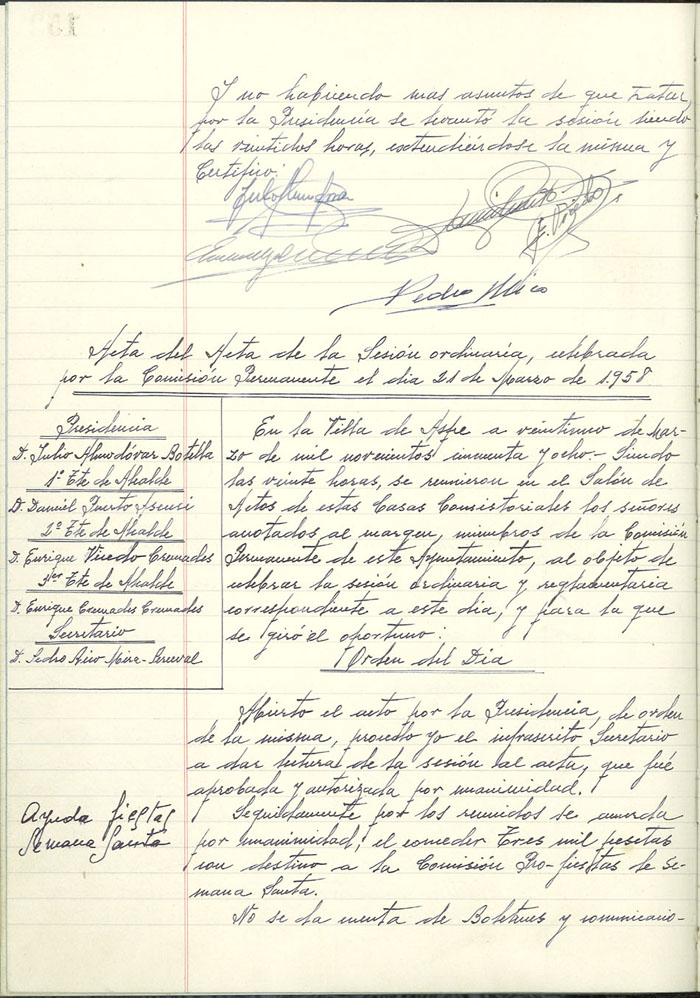 Y no habiendo mas asuntos de que tratar,
por la Presidencia se levantó la sesión siendo
las veintidos horas, extendiéndose la misma y
Certifico.
Pedro Mico
Acta del Acta de la Sesión ordinaria, celebrada
por la Comisión Permanente el dia 21 de Marzo de 1958
Presidencia
D. Julio Almodóvar Botella
1º Tte de Alcalde
D. Daniel Puerto Asensi
2º Tte de Alcalde
D. Enrique Vicedo Cremades
3er Tte de Alcalde
D. Enrique Cremades Cremades
Secretario
D. Pedro Mira-Perceval
En la Villa de Aspe a veintiuno de Mar-
zo de mil novecientos cincuenta y ocho.- Siendo
las veinte horas, se reunieron en el Salón de
Actos de estas Casas Consistoriales los señores
anotados al margen, miembros de la Comisión
Permanente de este Ayuntamiento, al objeto de
celebrar la sesión ordinaria y reglamentaria
correspondiente a este dia, y para la que
se giró el oportuno:
Orden del Dia
Abierto el acto por la Presidencia, de orden
de la misma, procedo yo el infrascrito Secretario
a dar lectura de la sesión al acta, que fué
aprobada y autorizada por unanimidad.
Ayuda fiestas
Semana Santa
Seguidamente por los reunidos se acuerda
por unanimidad, el conceder Tres mil pesetas
con destino a la Comisión Pro-fiestas de Se-
mana Santa.
No se da cuenta de Boletines y comunicacio-